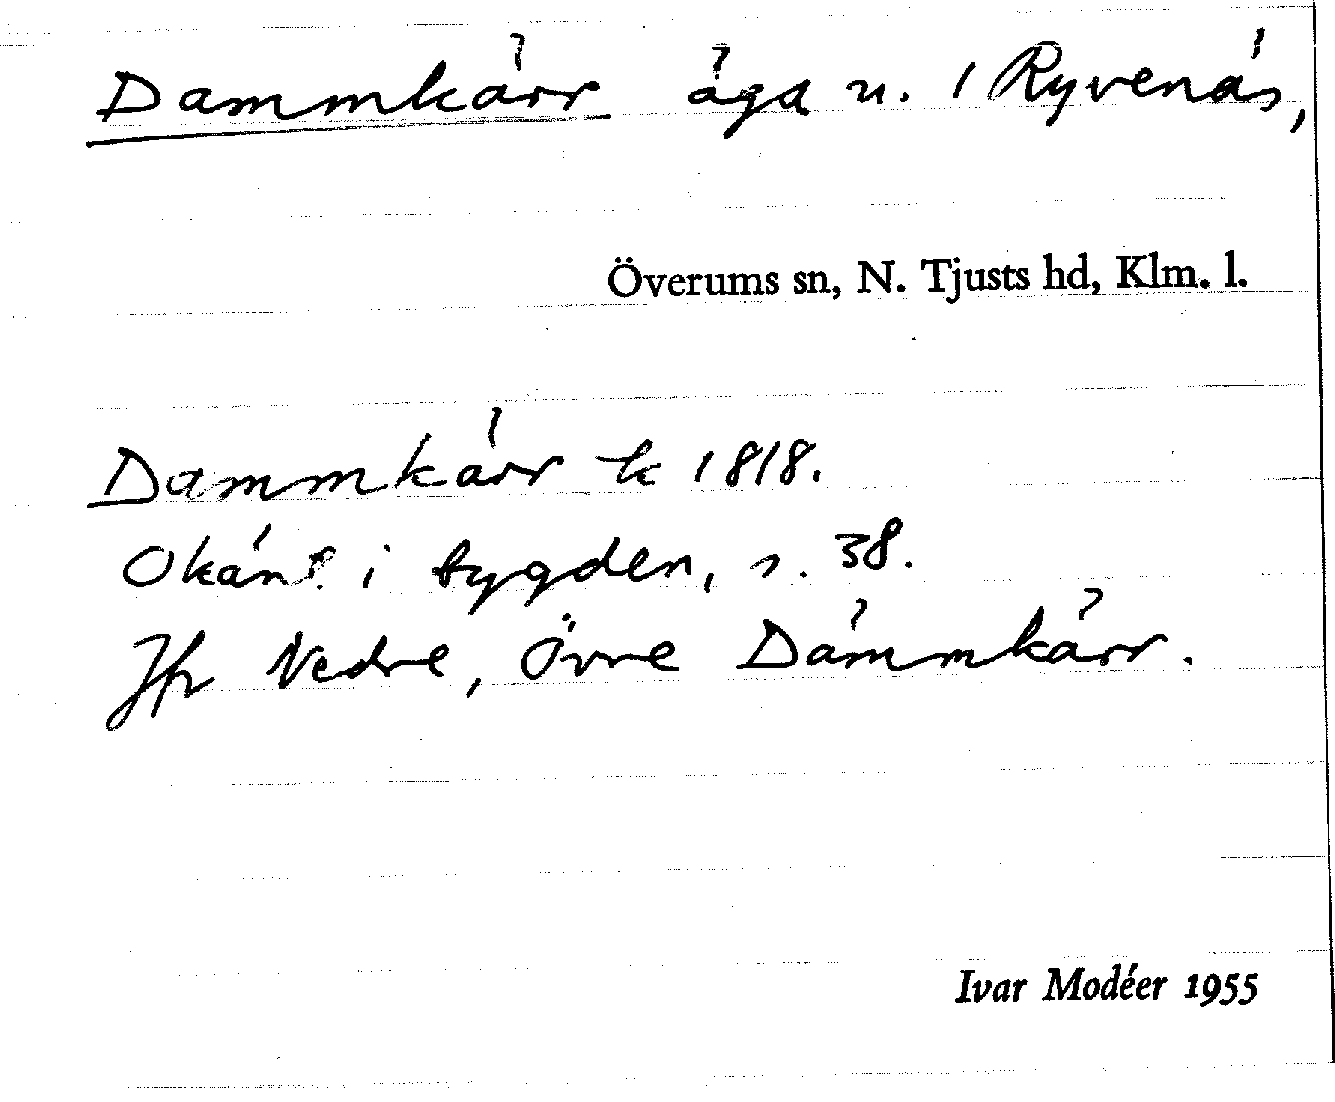 Dammkärr äga u. i Ryvenäs,
Överums sn, N. Tjusts hd, Klm. l.
Dammkärr k 1818.
Okänt i bygden, s. 38.
Jfr Nedre, Övre Dämmkärr.
Ivar Modéer 1955